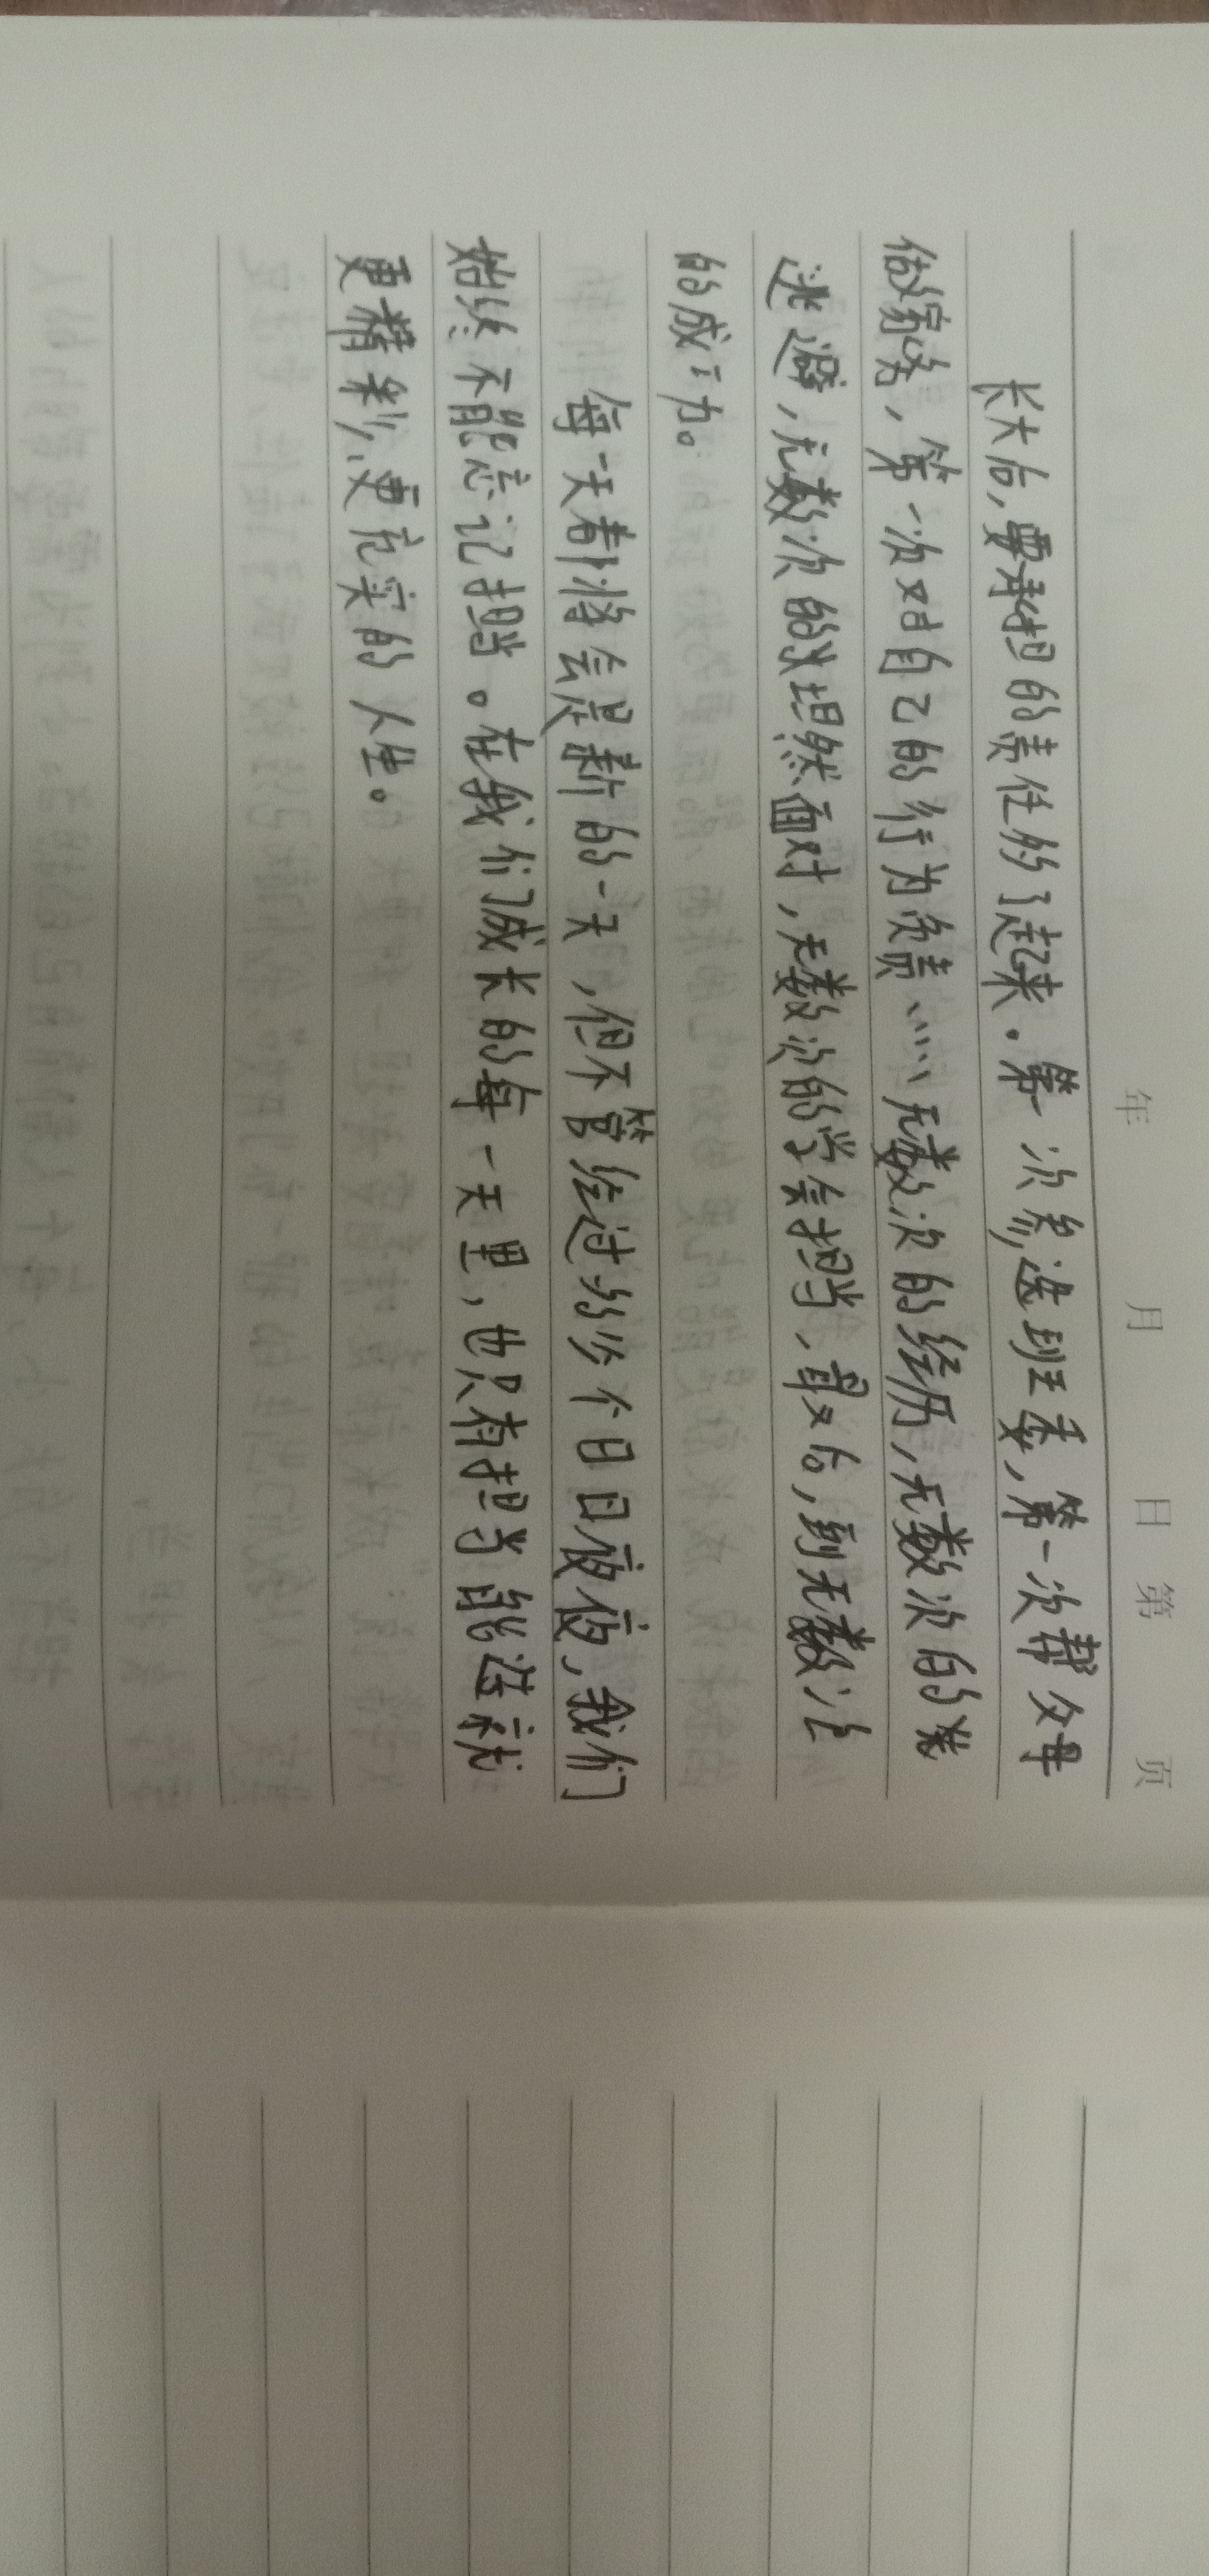 年 月 日 第 页
长大后，要承担的责任多了起来。第一次参选到班委，第一次帮父母
做家务，第一次对自己的行为负责……无数次的经历，无数次的不
逃避，无数次的坦然面对，无数次的学会担当、最后，到无数次
的成功。
每一天都将会是新的一天，但不管经过多少个日日夜夜，我们
始终不能忘记担当。在我们成长的每一天里，也只有担当能造就
更精彩、更充实的人生。